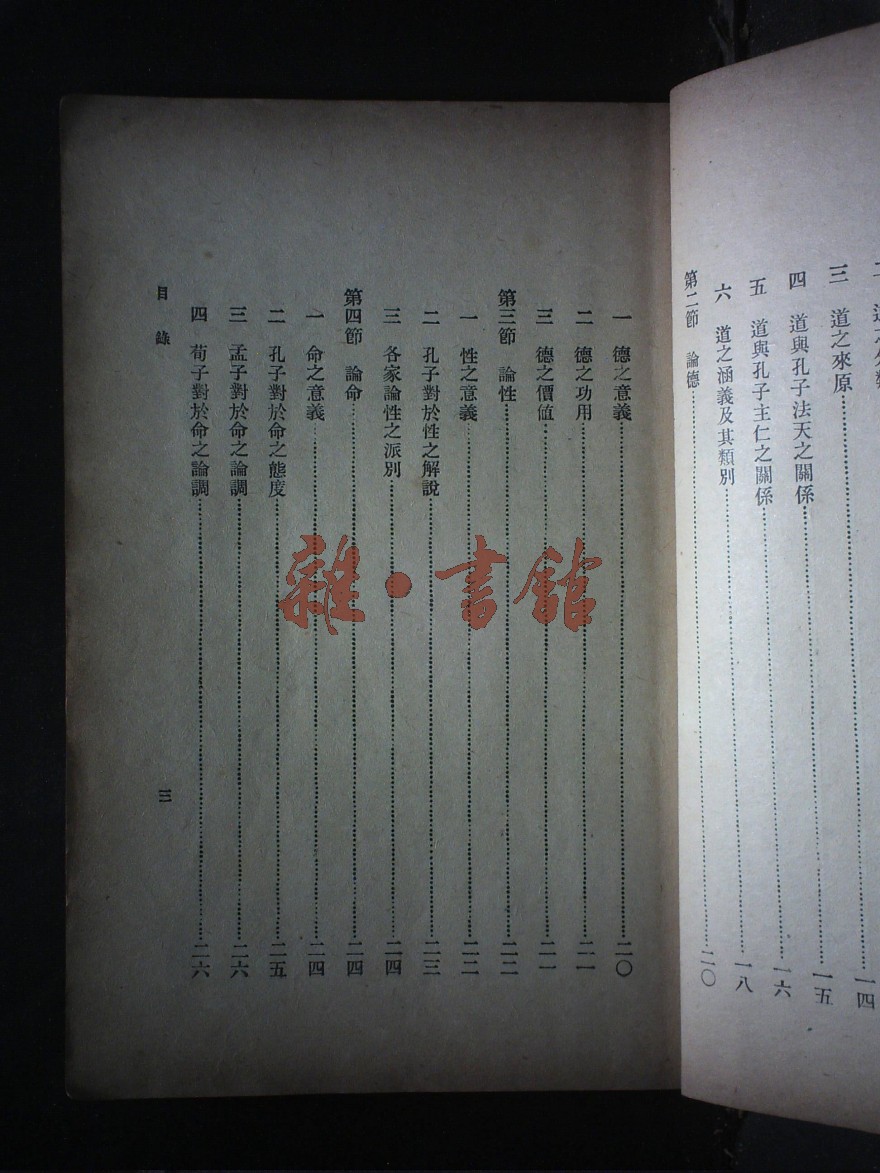 三 道之來原……一四
四 道與孔子法天之關係……一五
五 道與孔子主仁之關係……一六
六 道之涵義及其類別……一八
第二節 論德……二〇
一 德之意義……二〇
二 德之功用……二一
三 德之價値……二一
第三節 論性……二二
一 性之意義……二二
二 孔子對於性之解說……二三
三 各家論性之派別……二四
第四節 論命……二四
一 命之意義……二四
二 孔子對於命之態度……二五
三 孟子對於命之論調……二六
四 荀子對於命之論調……二六
目錄
三
雜·書館